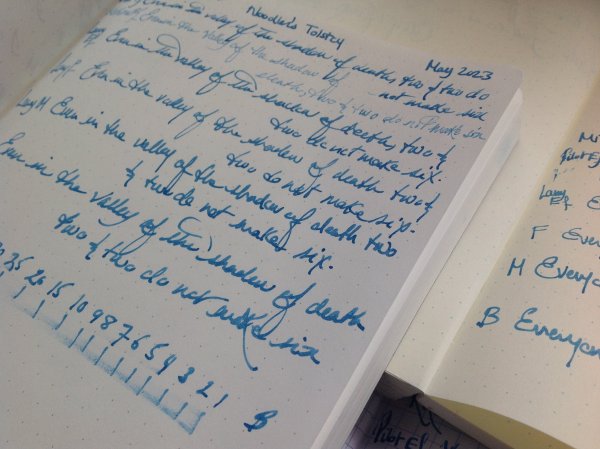 Noodler's Tolstoy
May 2023
Even in the valley of the shadow of death, two & two do
not make six
Even in the valley of the shadow of
death, two & two do not make six
EF Even in the valley of the shadow of death, two &
two do not make six.
Even in the valley of the shadow of death two &
two do not make six.
Lamy M Even in the valley of the shadow of death two
& two do not make six.
Even in the valley of the shadow of death
two & two do not make six
25 20 15 10 9 8 7 6 5 4 3 2 1
B
Pilot EF
Lamy
EF E
F Every
M Everyon
B Everyon
Pilot EF